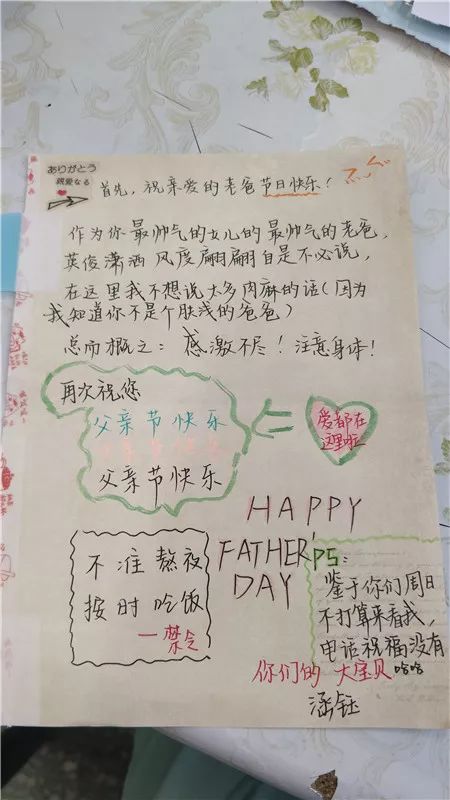 ありがとう
親愛なる
首先，祝亲爱的老爸节日快乐！
作为你最帅气的女儿的最帅气的老爸，
英俊潇洒 风度翩翩自是不必说，
在这里我不想说太多肉麻的话（因为
我知道你不是个肤浅的爸爸）
总而概之：感激不尽！注意身体！
再次祝您
父亲节快乐
父亲节快乐
父亲节快乐
爱都在
这里啦
HAPPY
FATHER'
DAY
不准熬夜
按时吃饭
一禁令
PS:
鉴于你们周日
不打算来看我，
电话祝福没有
哈哈
你们的 大宝贝
涵钰